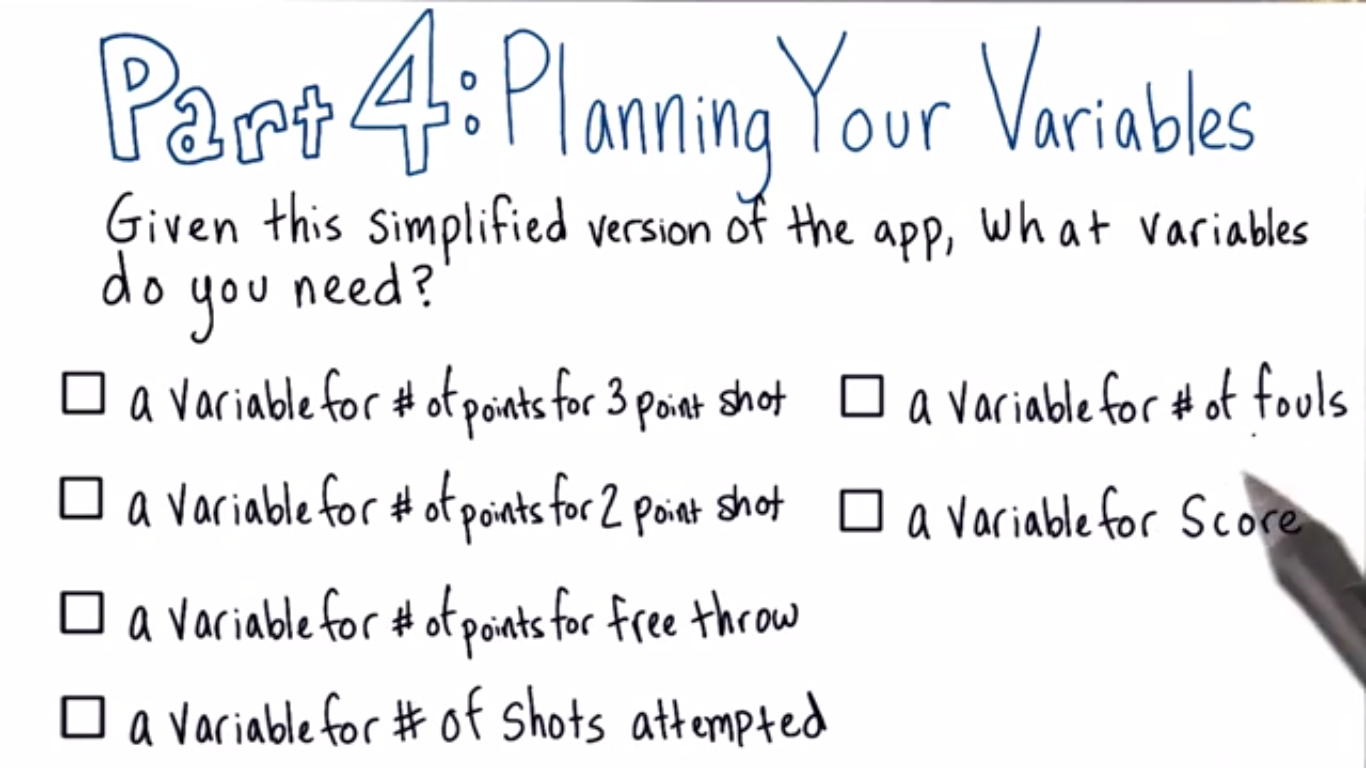 Part 4: Planning Your Variables
Given this simplified version of the app, what variables
do you need?
a variable for # of points for 3 point shot
a variable for # of points for 2 point shot
a variable for # of points for free throw
a variable for # of shots attempted
a variable for # of fouls
a variable for Score